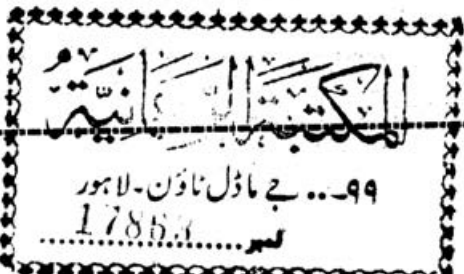 المكتبة الرحمانية
۹۹-.. جے ماڈل ٹاؤن-لاہور
نمبر.....17863.....